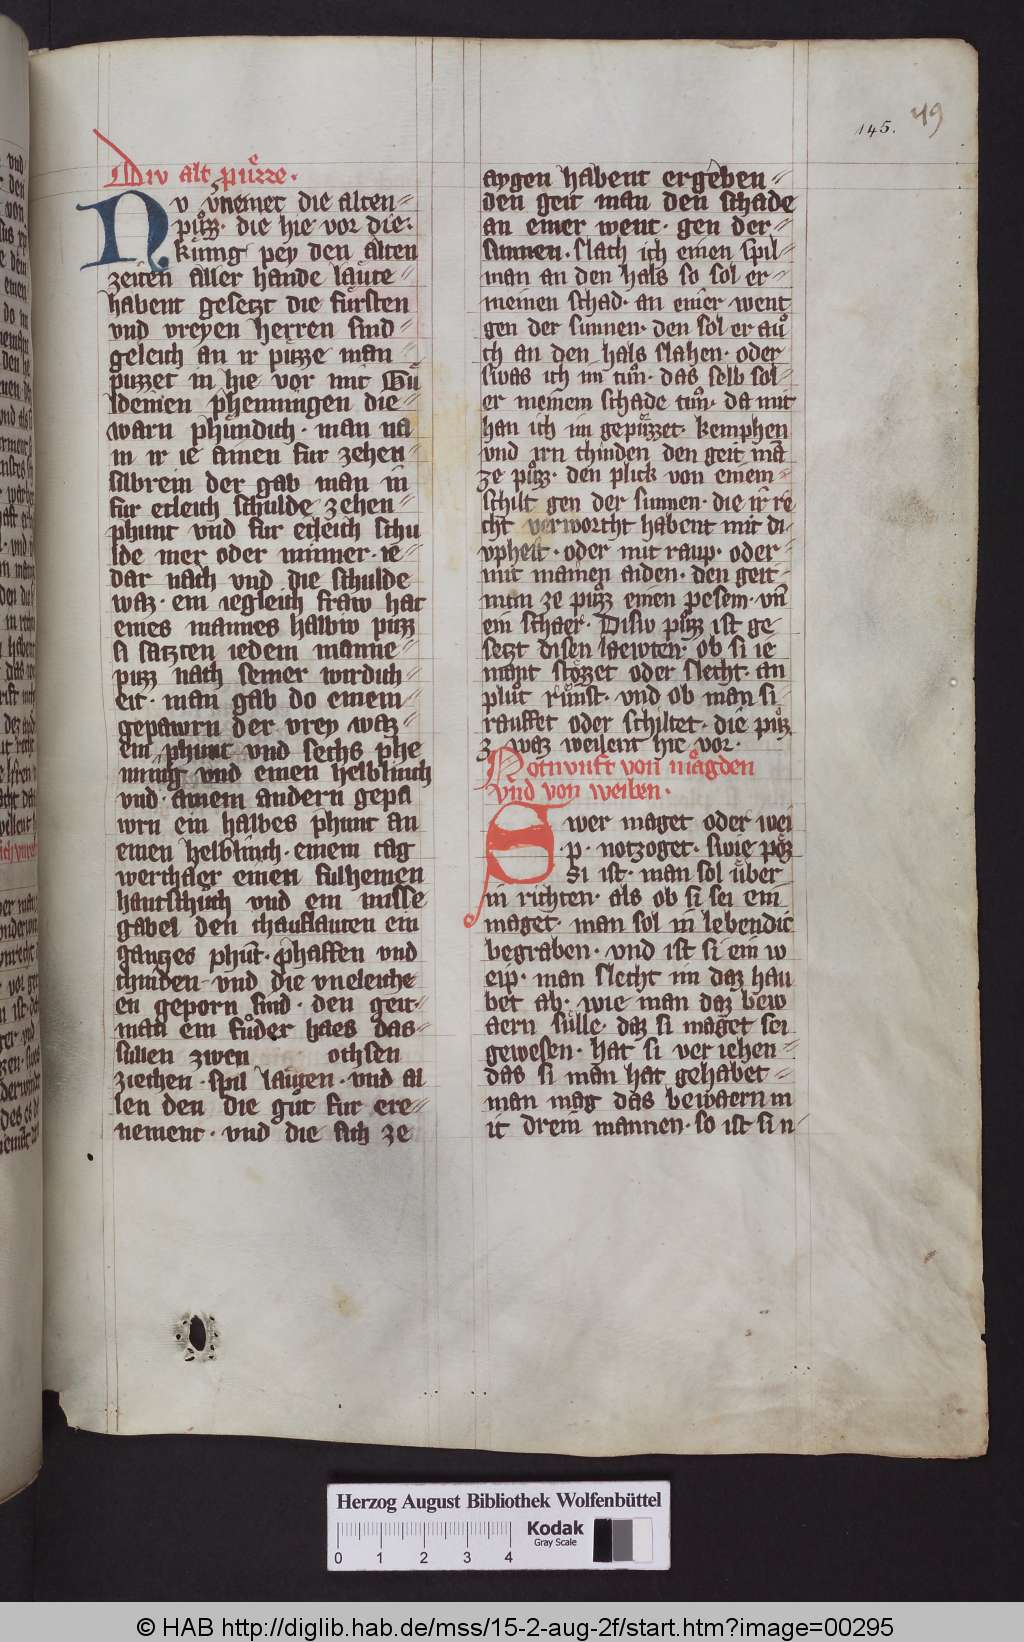 145. 49
Div alt pu̍zze.
Nv v̍nemet die alten
pu̍zz · die hie vor die
ku̍nig pey den alten
zeiten aller hande lau̍te
habent gesetzt die fu̍rsten
vnd vreyen herren sind
geleich an ir pu̍zze man
puzzet in hie vor mit Gu̍
ldeinen phenningen die
warn phu̍ndich · man na
m ir ie ainen fur zehen
silbrein der gab man in
fur etleich schulde zehen
phunt vnd fur etleich schu
lde mer oder minner · ie
dar nach vnd die schulde
waz · ein iegleich fraw hat
eines mannes halbiw puzz
si satzten iedem manne
puzz nach seiner wirdich
eit · man gab do einem
gepawrn der vrey waz
ein phunt vnd sechs phe
nning vnd einen helblinch
vnd · ainem andern gepa
wrn ein halbes phunt an
einen helblinch · einem tag
werchaer einen fulheinen
hantschuch vnd ein misse
gabel den chauflauten ein
gantzes phu̅t · phaffen vnd
chinden vnd die vneleiche
en geporn sind · den geit
man ein fůder haes das
sullen zwen ochsen
ziechen · spil lau̍ten · vnd al
len den die gůt fur ere
nement · vnd die sich ze
aygen habent ergeben
den geit man den schade
an einer went · gen der
sunnen · slach ich einen spil
man an den hals so sol er
meinen schad · an einer went
gen der sunnen · den sol er aů
ch an den hals slahen · oder
swas ich im tůn · das selb sol
er meinem schade tůn · da mit
han ich im gepůzzet · kemphen
vnd irn chinden den geit ma̅
ze pu̍zz · den plick von einem
schilt gen der sunnen · die ir re
cht verworcht habent mit di
vpheit · oder mit raup · oder
mit mainen aiden · den geit
man ze pu̍zz einen pesem · vn̅
ein schaer · Disiw pu̍zz ist ge
setzt disen laewten · ob si ie
mant stözzet oder slecht · an
plůt růnst · vnd ob man si
rauffet oder schiltet · die pu̍z
z waz weilent hie vor ·
Notnunft von mågden
vnd von weiben ·
Swer maget oder wei
p · notzoget · swie pöz
si ist · man sol u̍ber
in richten · als ob si sei ein
maget · man sol in lebendic
begraben · vnd ist si ein w
eip · man slecht im daz hau
bet ab · wie man daz bew
aern su̍lle · daz si maget sei
gewesen · hat si ver iehen
das si man hat gehabet
man mag das bewaern m
it drein mannen · so ist si n
Herzog August Bibliothek Wolfenbüttel
Kodak
Gray Scale
0 1 2 3 4
© HAB http://diglib.hab.de/mss/15-2-aug-2f/start.htm?image=00295